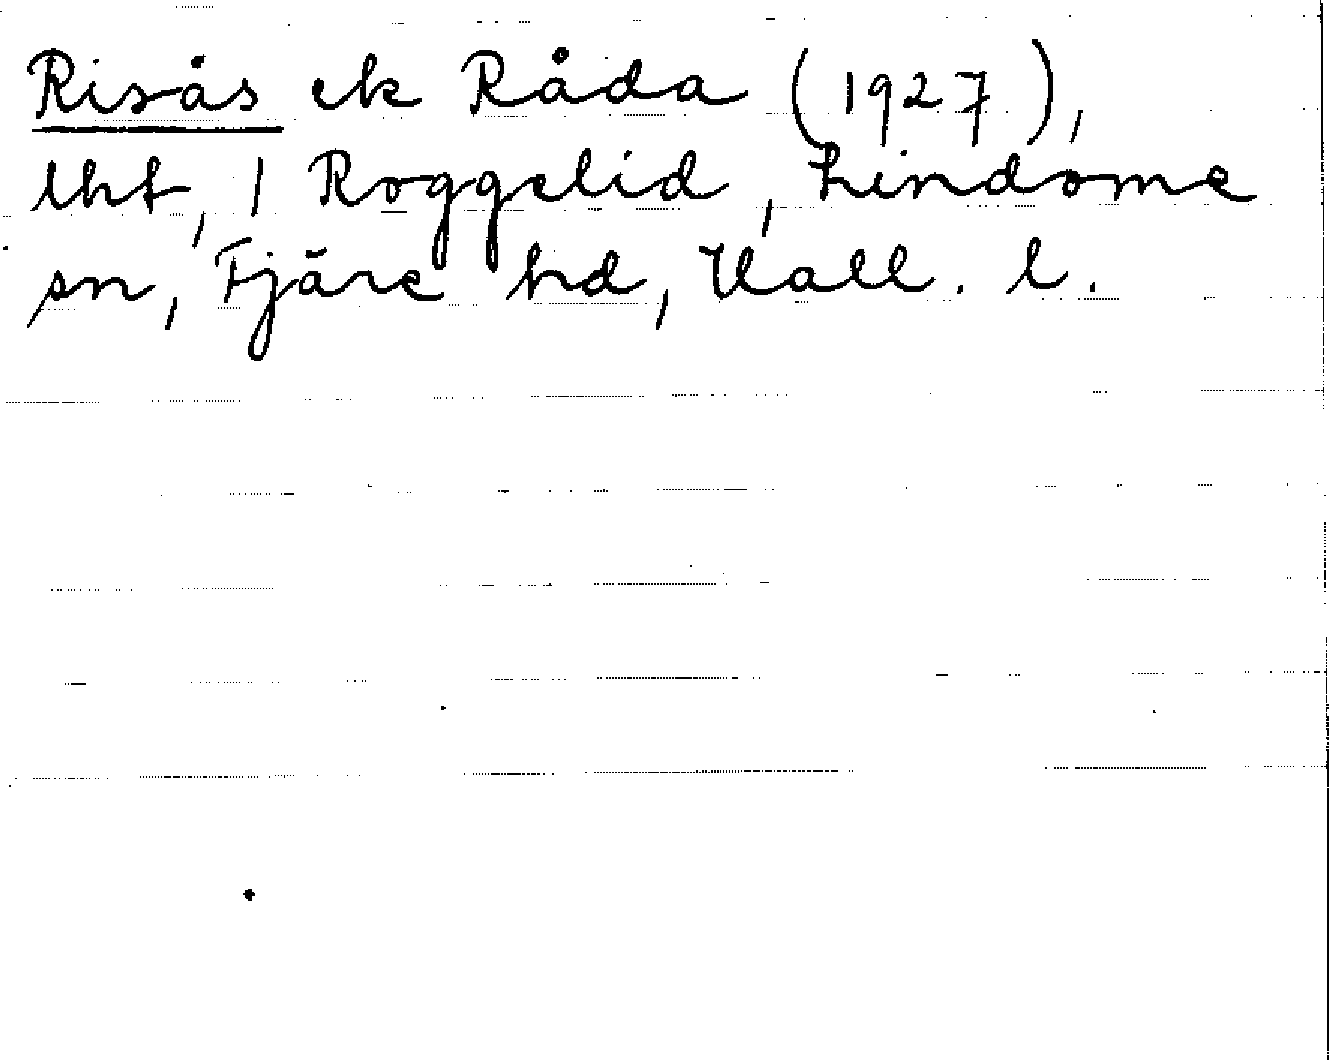 Risås ek Råda (1927),
lht, 1 Roggelid, Lindome
sn, Fjäre hd, Hall. l.